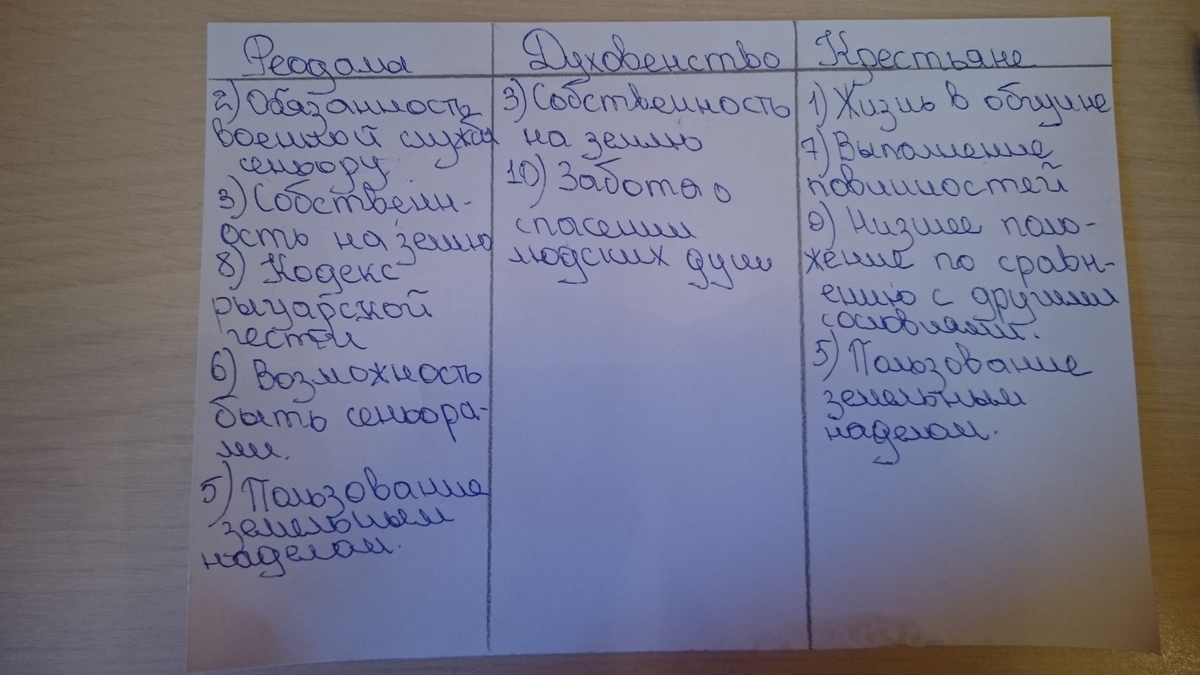 Феодалы
2) Обязанность
военной службы
сеньору
3) Собственн-
ость на землю
8) Кодекс
рыцарской
чести
6) Возможность
быть сеньора-
ми.
5) Пользование
земельным
наделом.
Духовенство
3) Собственность
на землю
10) Забота о
спасении
людских душ
Крестьяне
1) Жизнь в общине
7) Выполнение
повинностей
9) Низшее поло-
жение по сравн-
ению с другими
сословиями.
5) Пользование
земельным
наделом.